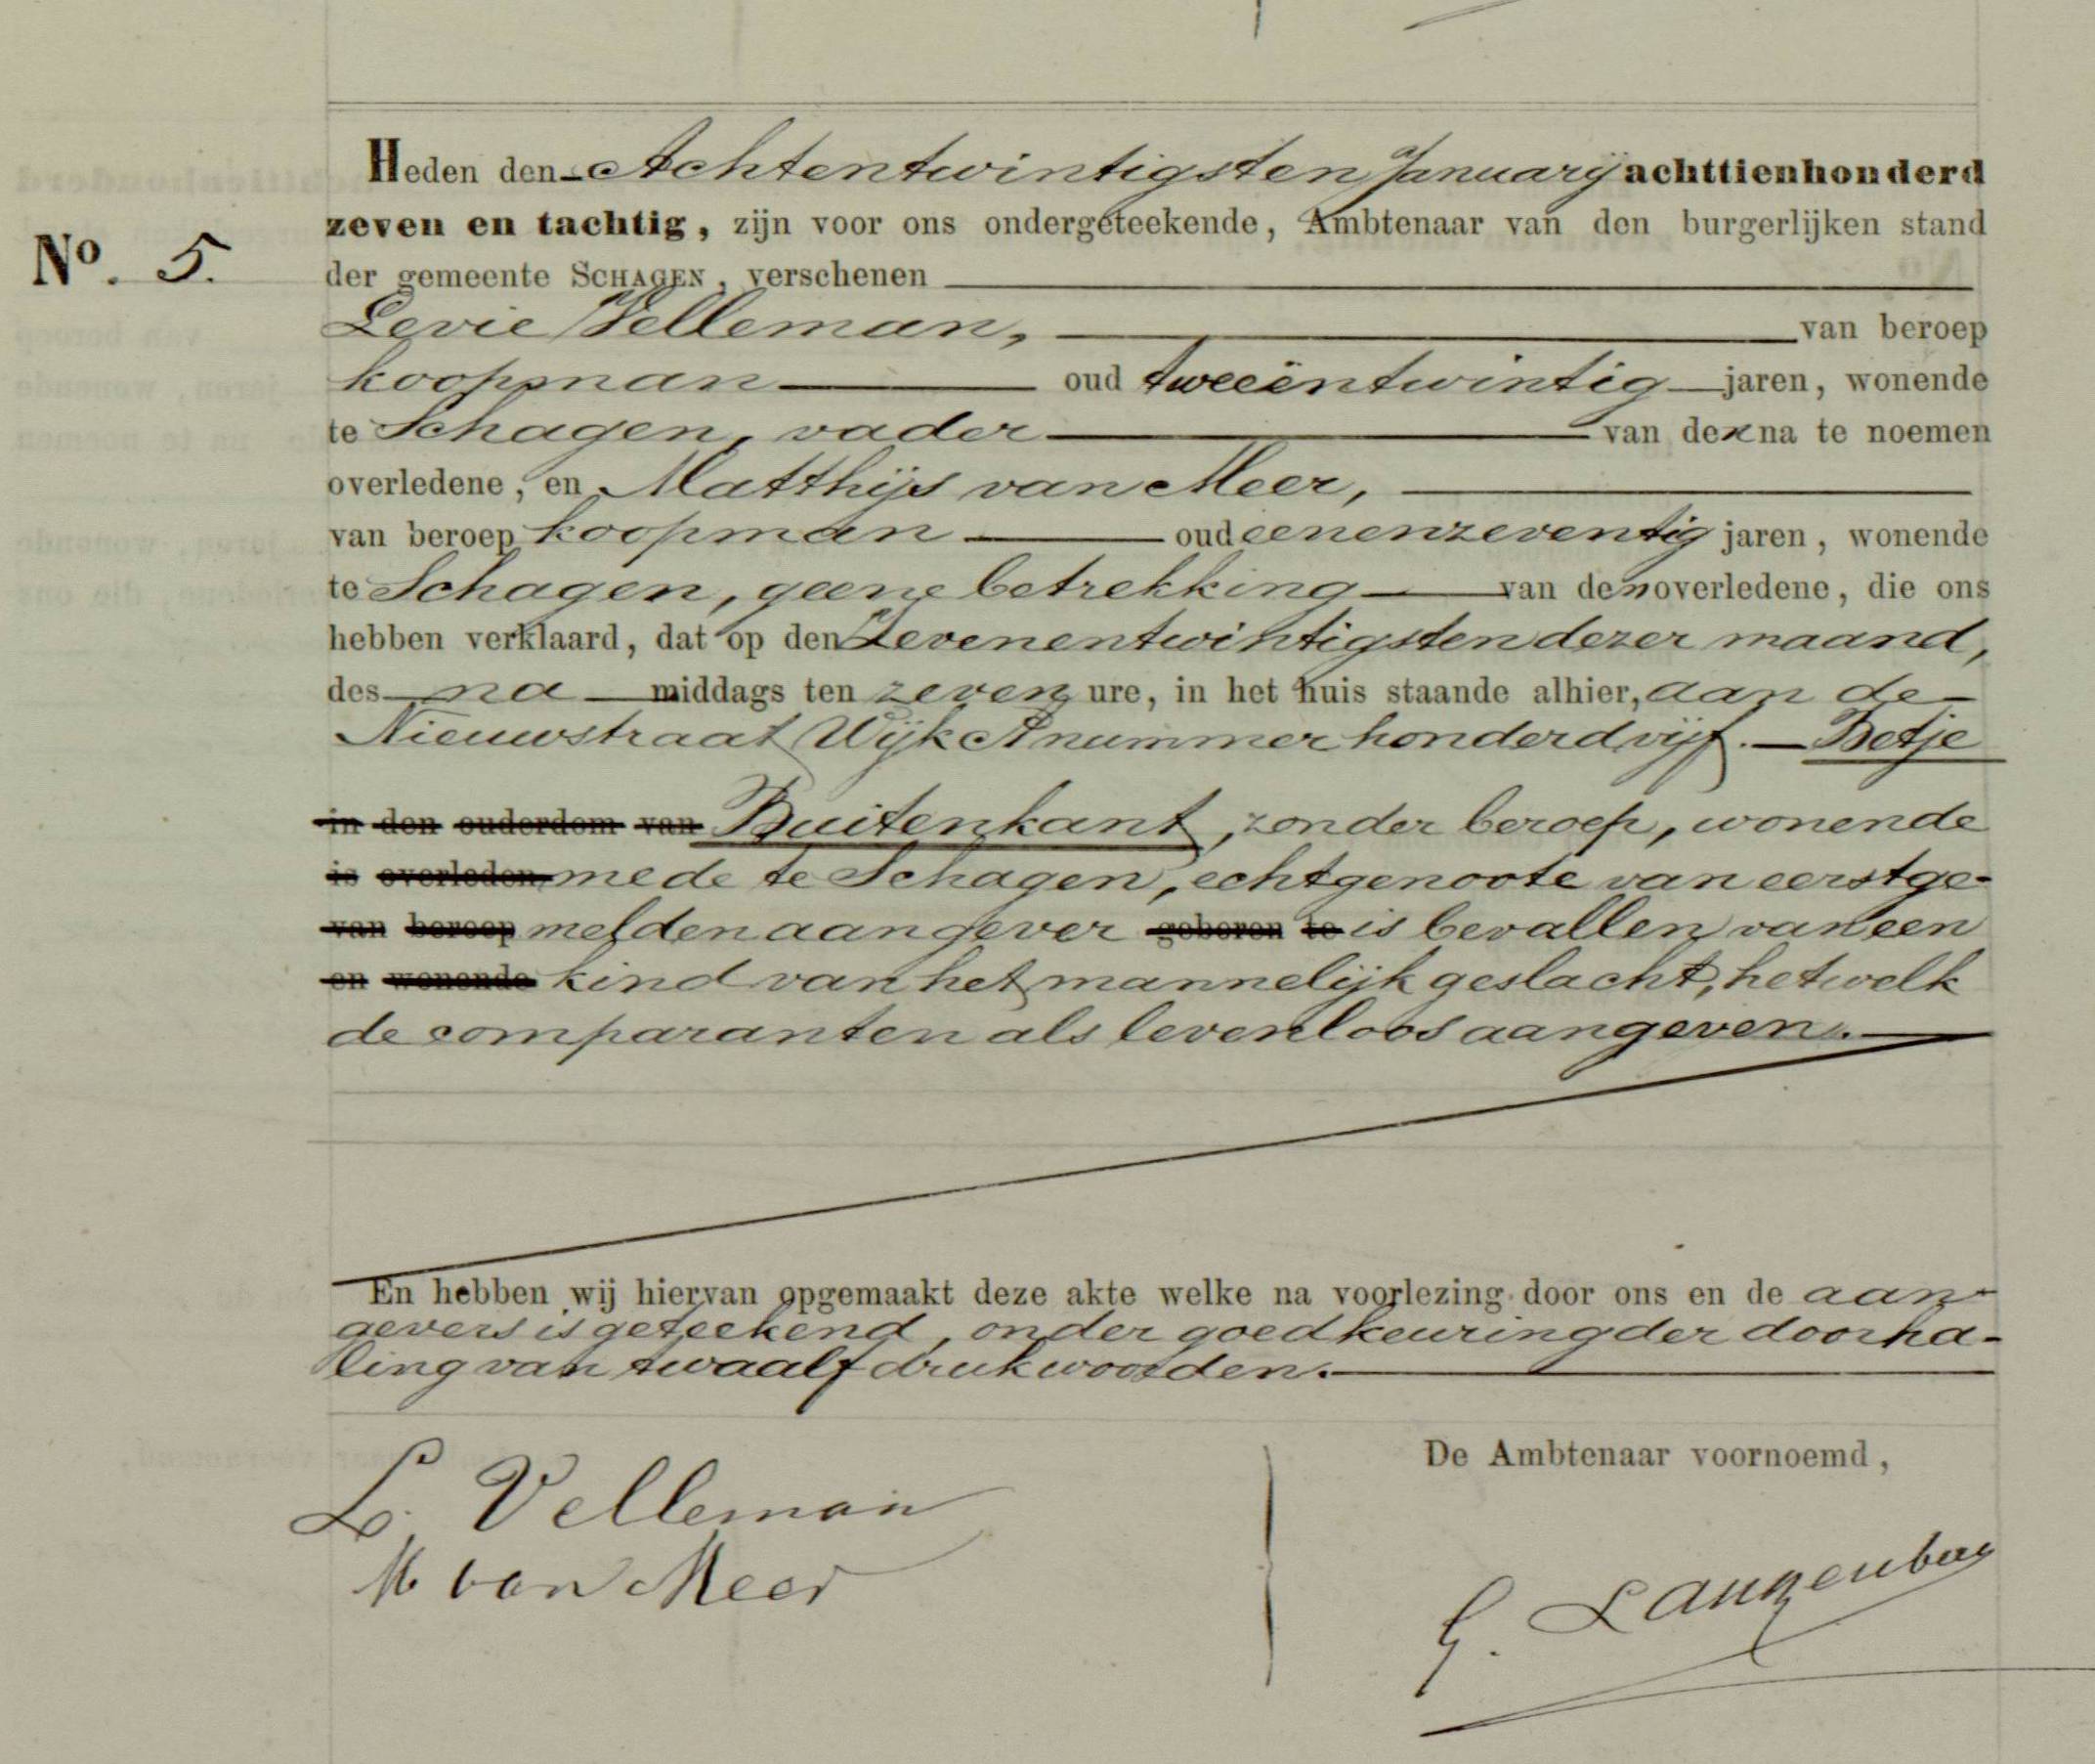 Heden den Achtentwintigsten Januarij achttienhonderd
zeven en tachtig, zijn voor ons ondergeteekende, Ambtenaar van den burgerlijken stand
No. 5.
der gemeente SCHAGEN, verschenen
Levie Velleman, van beroep
koopman oud tweeëntwintig jaren, wonende
te Schagen, vader van den na te noemen
overledene, en Matthijs van Meer,
van beroep koopman oud eenenzeventig jaren, wonende
te Schagen, geene betrekking van den overledene, die ons
hebben verklaard, dat op den Zevenentwintigsten dezer maand,
des na middags ten zeven ure, in het huis staande alhier, aan de
Nieuwstraat Wijk A nummer honderd vijf. — Betje
in den ouderdom van Buitenkant, zonder beroep, wonende
is overleden mede te Schagen, echtgenoote van eerstge-
van beroep melden aangever geboren te is bevallen van een
en wonende kind van het mannelijk geslacht, hetwelk
de comparanten als levenloos aangeven.
En hebben wij hiervan opgemaakt deze akte welke na voorlezing door ons en de aan-
gevers is geteekend, onder goedkeuring der doorha-
ling van twaalf drukwoorden.
De Ambtenaar voornoemd,
L. Velleman
M van Meer
G. Langenberg